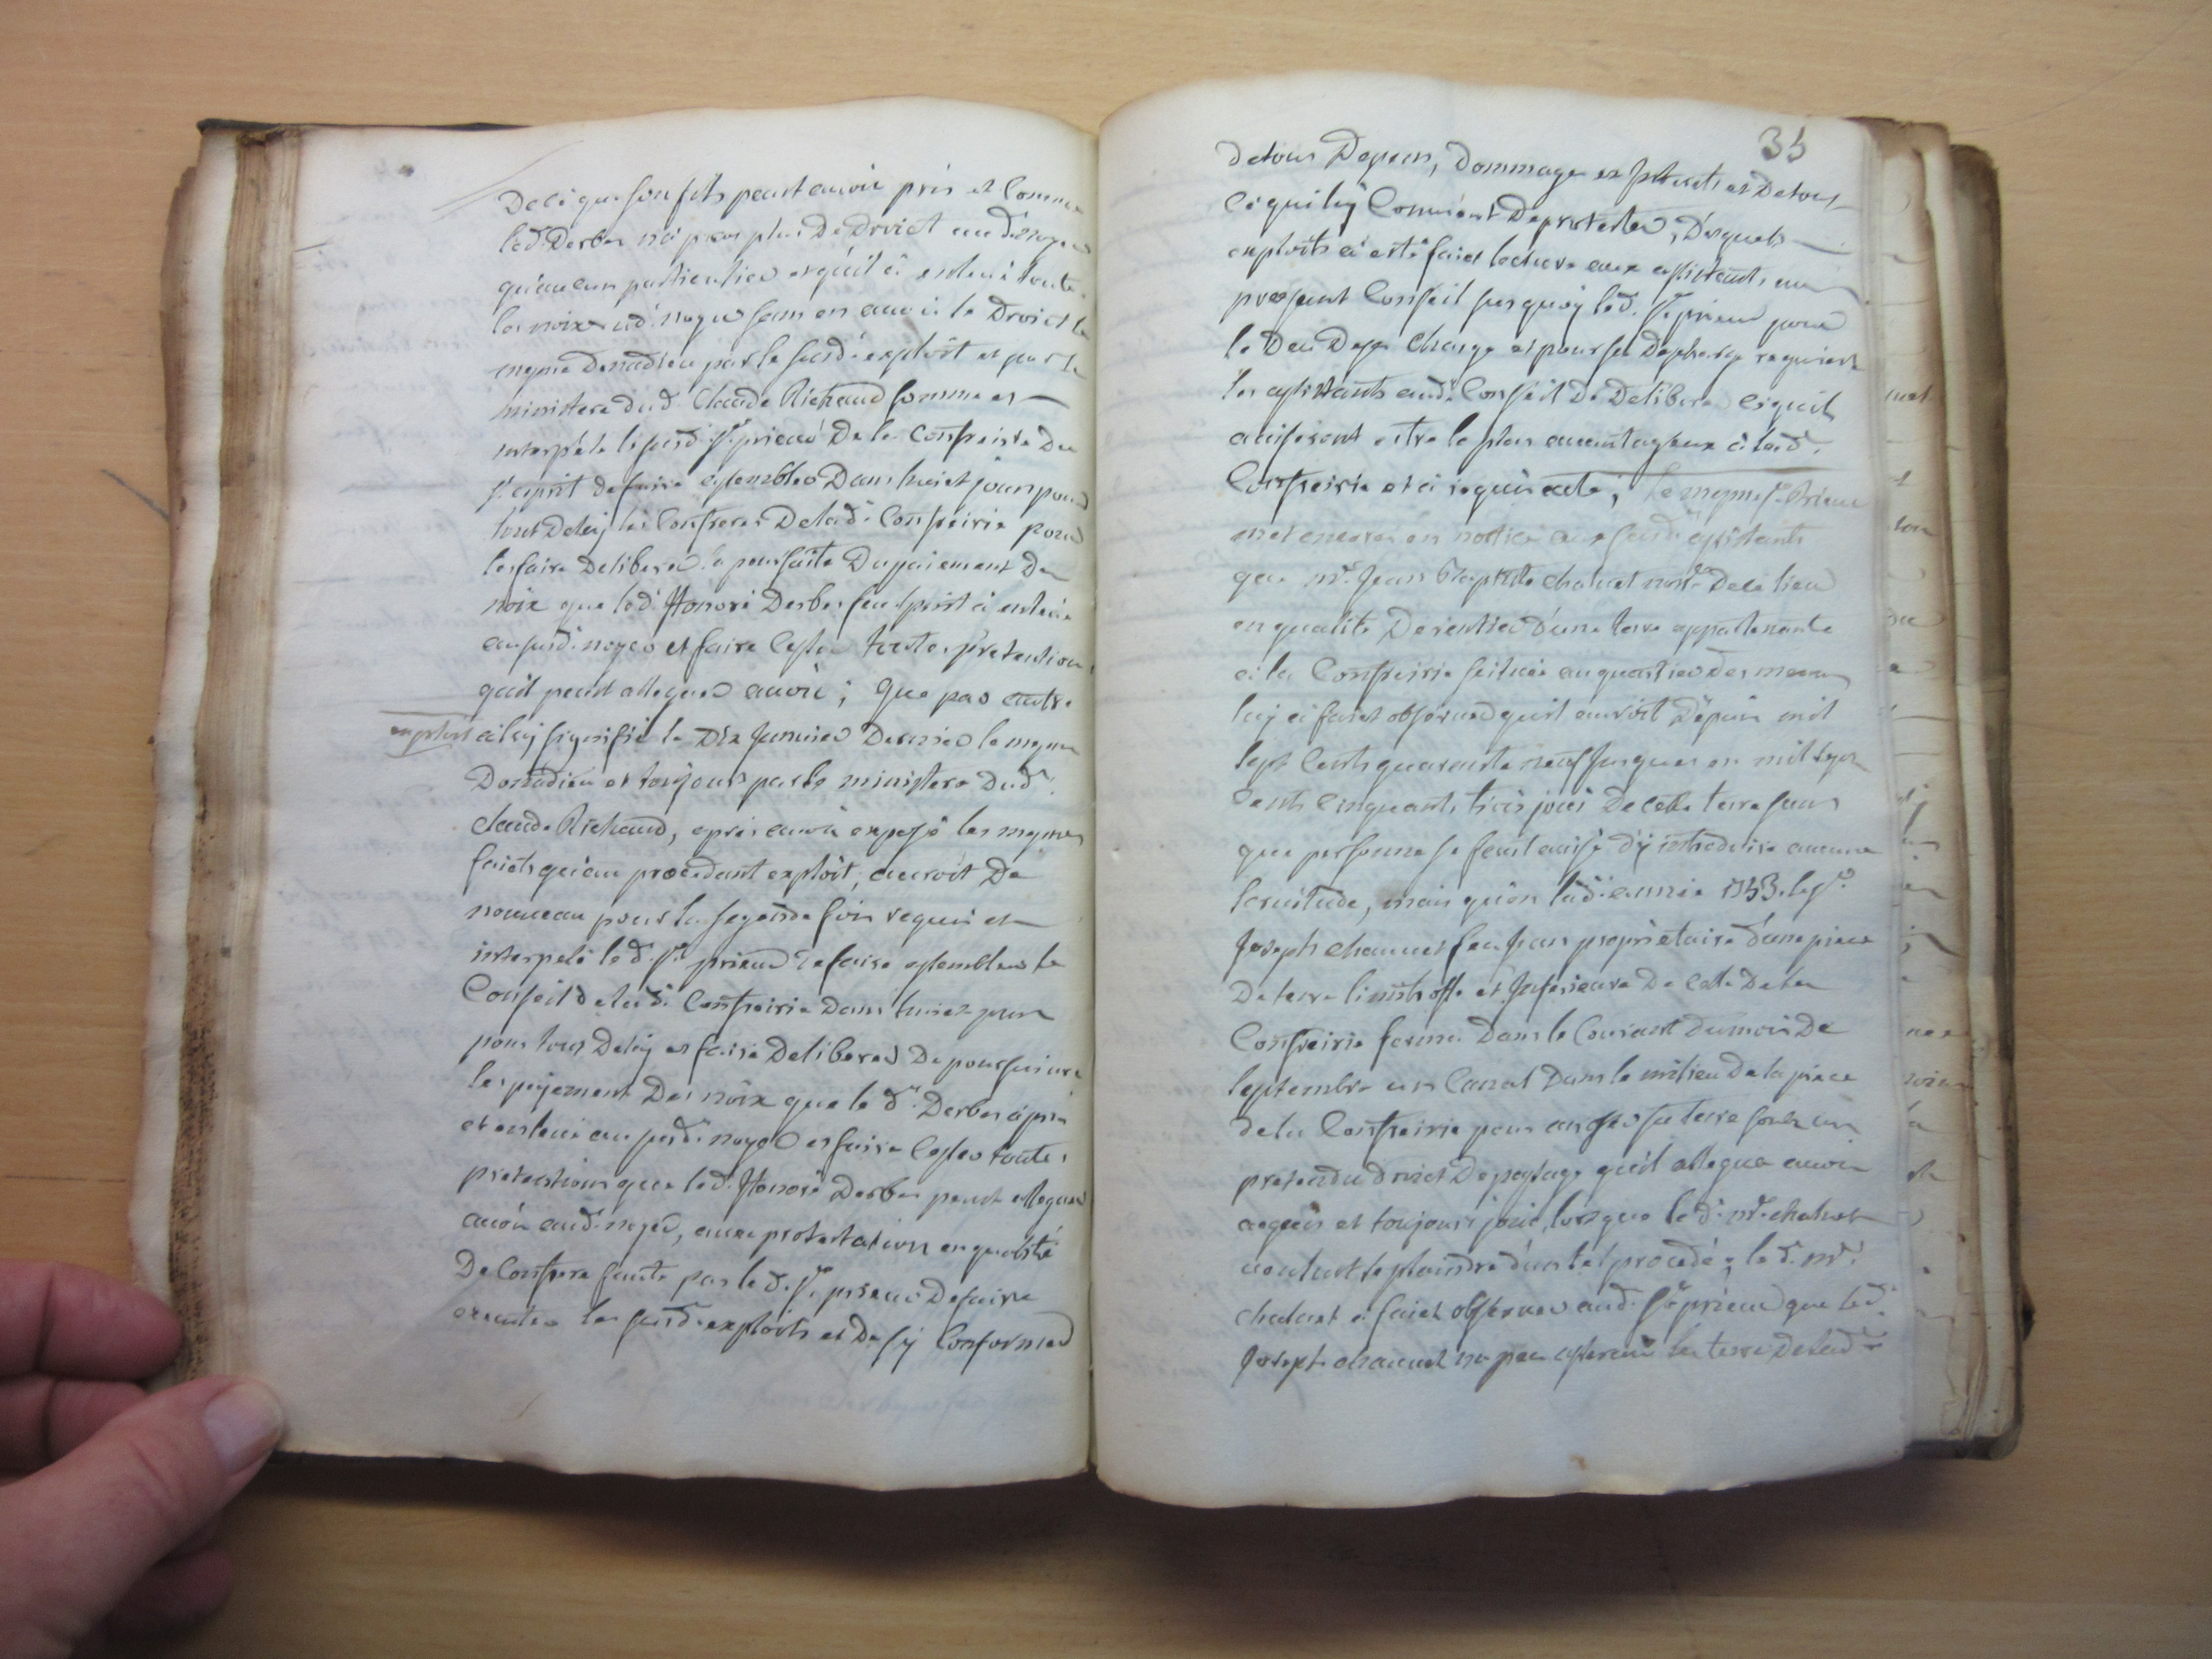 De ce que son fils peut avoir pris et comme
led. Derbes n'a pas plus De Droict aud. noyer
qu'aucun particulier et qu'il a enlevé toute
les noix aud. noyer sans en avoir le Droict le
mesme Donadieu par le susd. exploit et par le
ministere dud. Claude Richaud somme et
interpelle le susd. Sr. prieur De la Confreirie Du
St. esprit de faire assembler Dans huict jours pour
tout Delay les Confreres De lad. Confreirie pour
les faire Deliberer la poursuite Du paiement Des
noix que led. Honoré Derbes feu esprit a enlevé
au susd. noyer et faire cesser toutes pretentions
qu'il peut alleguer avoir; Que par autre
exploit a luy signifié le Dix Janvier Dernier le mesme
Donadieu et toujours par le ministere Dud.
Claude Richaud, apres avoir exposé les mesmes
faicts qu'au precedant exploit, auroit De
nouveau pour la segonde fois requis et
interpelé led. Sr. prieur De faire assembler le
Conseil de lad. Confreirie Dans huict jours
pour tout Delay et faire Deliberer De poursuivre
le payement Des noix que le d. Derbes a pris
et enlevé au susd. noyer et faire Cesser toutes
pretentions que led. Honoré Derbes peut alleguer
avoir aud. noyer, avec protestation en qualité
De Confrere faute par le d. Sr. prieur De faire
executer les susd. exploits et De s'y Conformer
35
de tous Depens, Dommages et Interets et De tout
Ce qui luy Convient De protester, Desquels
exploits a esté faict lecture aux assistants au
present Conseil sur quoy led. Sr. prieur pour
le Deu De sa Charge et pour sa Descharge requiert
les assistants aud. Conseil De Deliberer Ce qu'il
aviseront estre le plus avantageux a lad.
Confreirie et a requis acte; Le mesme Sr. Prieur
met encore en notice aux susd. assistants
que Mr. Jean Baptiste Chalvet nore. De ce lieu
en qualité De rentier D'une terre appartenante
a la Confreirie scituée au quartier Des
luy a faict observer qu'il auroit Depuis mil
sept Cents quarante neuf Jusques en mil sept
Cents Cinquante trois joui De cette terre sans
que personne se feut avisé D'y introduire aucune
servitude, mais qu'en lad. année 1753. le Sr.
Joseph Chauvet feu Jean proprietaire D'une piece
De terre limitroffe et Inferieure De Celle De la
Confreirie forma Dans le Courant Du mois De
septembre un Canal Dans le milieu De la piece
de la Confreirie pour arroser sa terre soubs un
pretendu Droict De passage qu'il allegue avoir
acquis et toujours joui, lorsque led. Mr. Chalvet
voulut se plaindre d'un tel procedé; le d. Mr.
Chalvet a faict observer aud. Sr. prieur que led.
Joseph Chauvet n'a peu asservir la terre De lad.